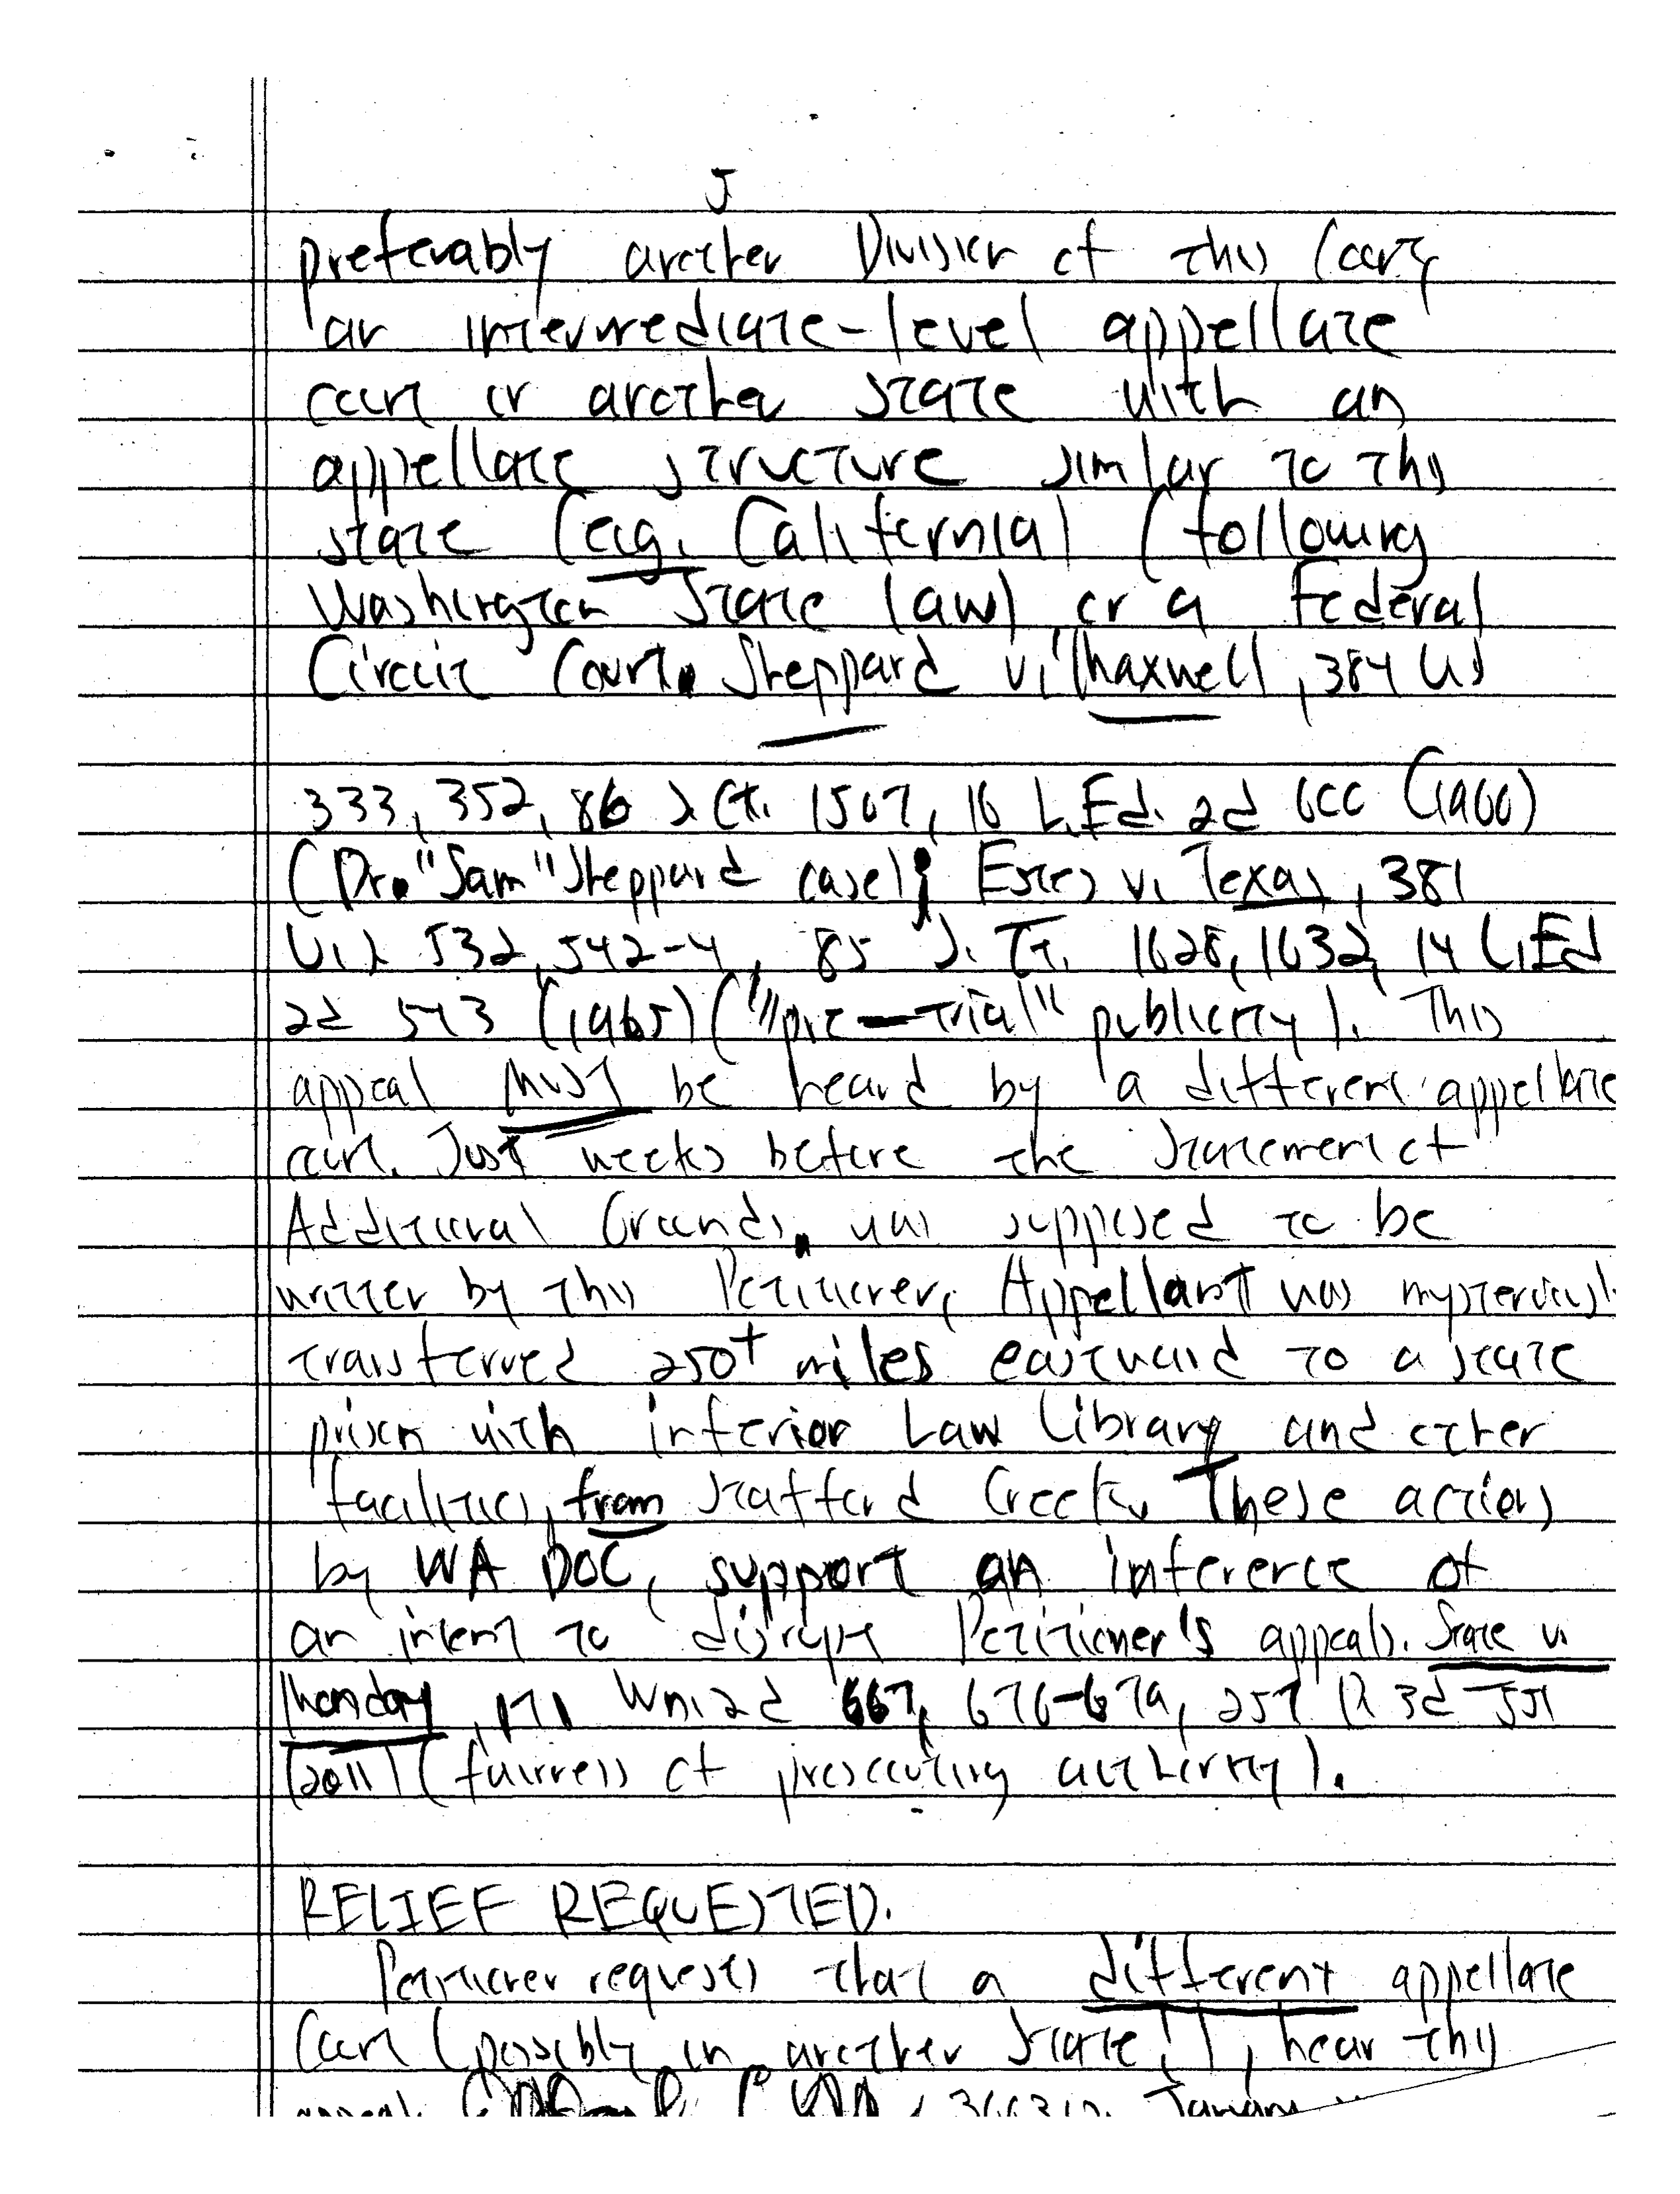 J
preferably another Division of this Court,
an intermediate-level appellate
court or another state with an
appellate structure similar to this
state (e.g. California) (following
Washington State law) or a Federal
Circuit Court. Sheppard v. Maxwell, 384 US
333, 352, 86 S. Ct. 1507, 16 L.Ed. 2d 600 (1966)
(Dr. "Sam" Sheppard case); Estes v. Texas, 381
U.S. 532, 542-4, 85 S. Ct. 1628, 1632, 14 L.Ed
2d 543 (1965) ("pre-trial" publicity). This
appeal must be heard by a different appellate
court. Just weeks before the Statement of
Additional Grounds, was supposed to be
written by this Petitioner, Appellant was mysteriousl
transferred 250+ miles eastward to a state
prison with inferior Law Library and other
facilities, from Stafford Creek. These actions
by WA DOC, support an inference of
an intent to disrupt Petitioner's appeals. State v.
Monday, 171 Wn.2d 667, 676-679, 257 P. 3d 551
(2011) (fairness of prosecuting authority).
RELIEF REQUESTED.
Petitioner requests that a different appellate
Court (possibly in another State!), hear this
appeal.